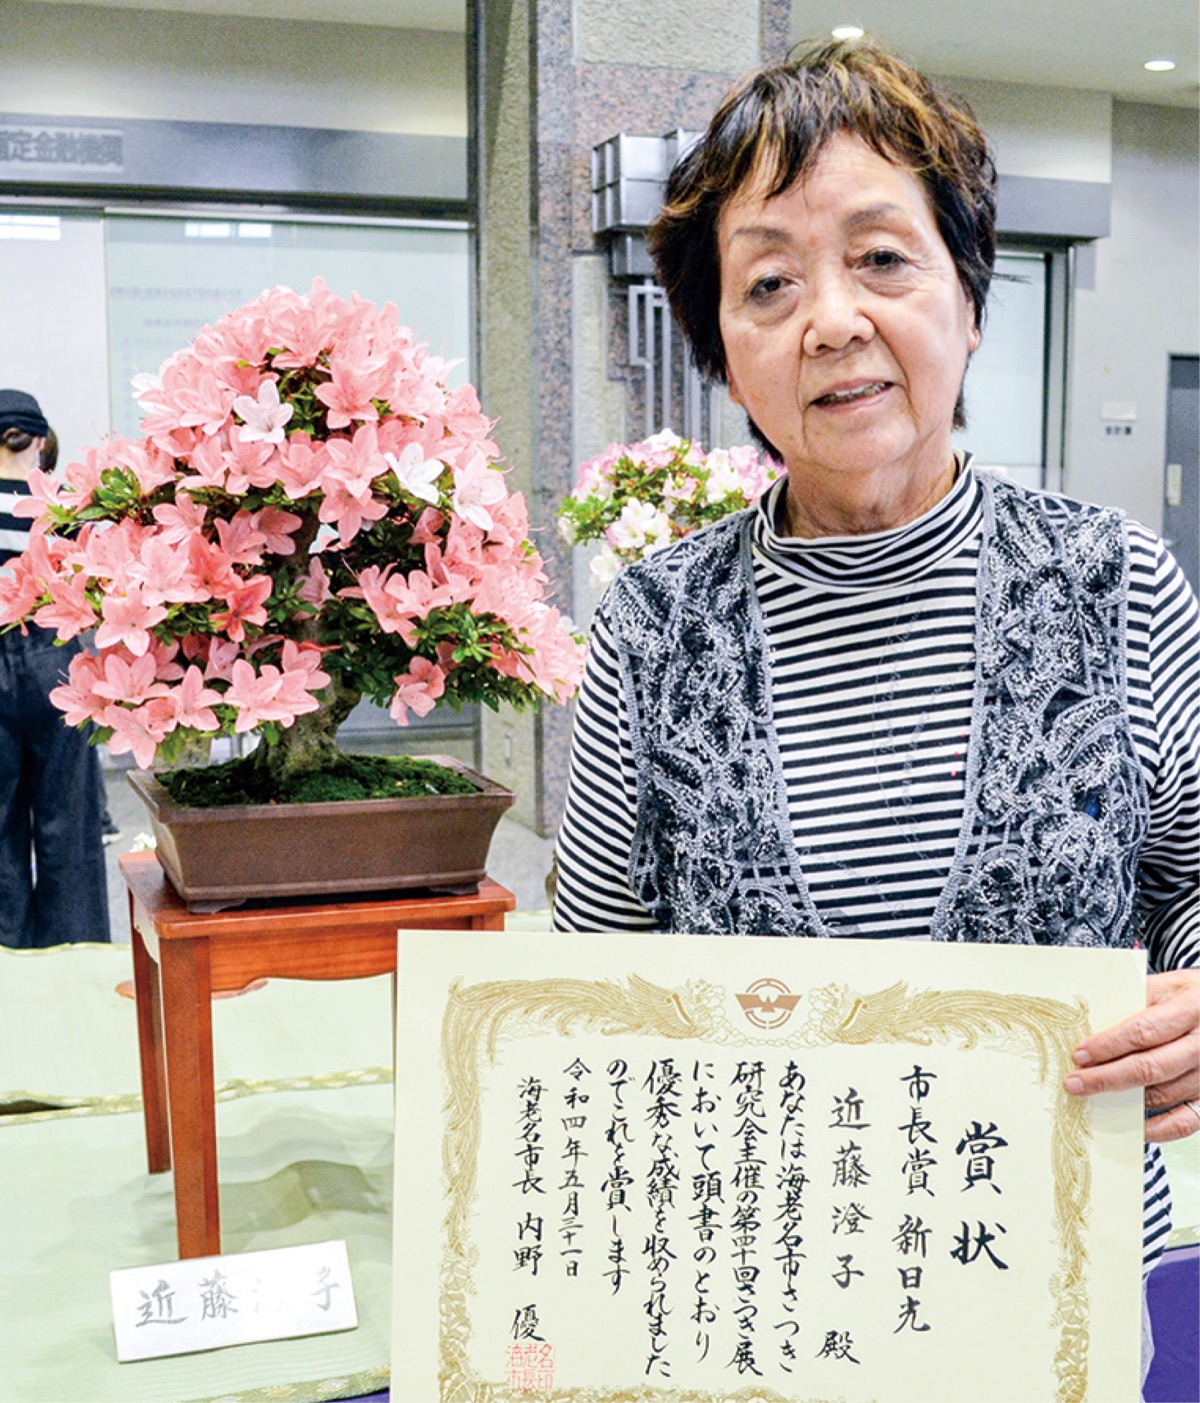 指定金融機関
賞状
市長賞 新日光
近藤澄子 殿
あなたは海老名市さつき
研究会主催の第四十回さつき展
において頭書のとおり
優秀な成績を収められました
のでこれを賞します
令和四年五月三十一日
海老名市長 内野 優
近藤澄子